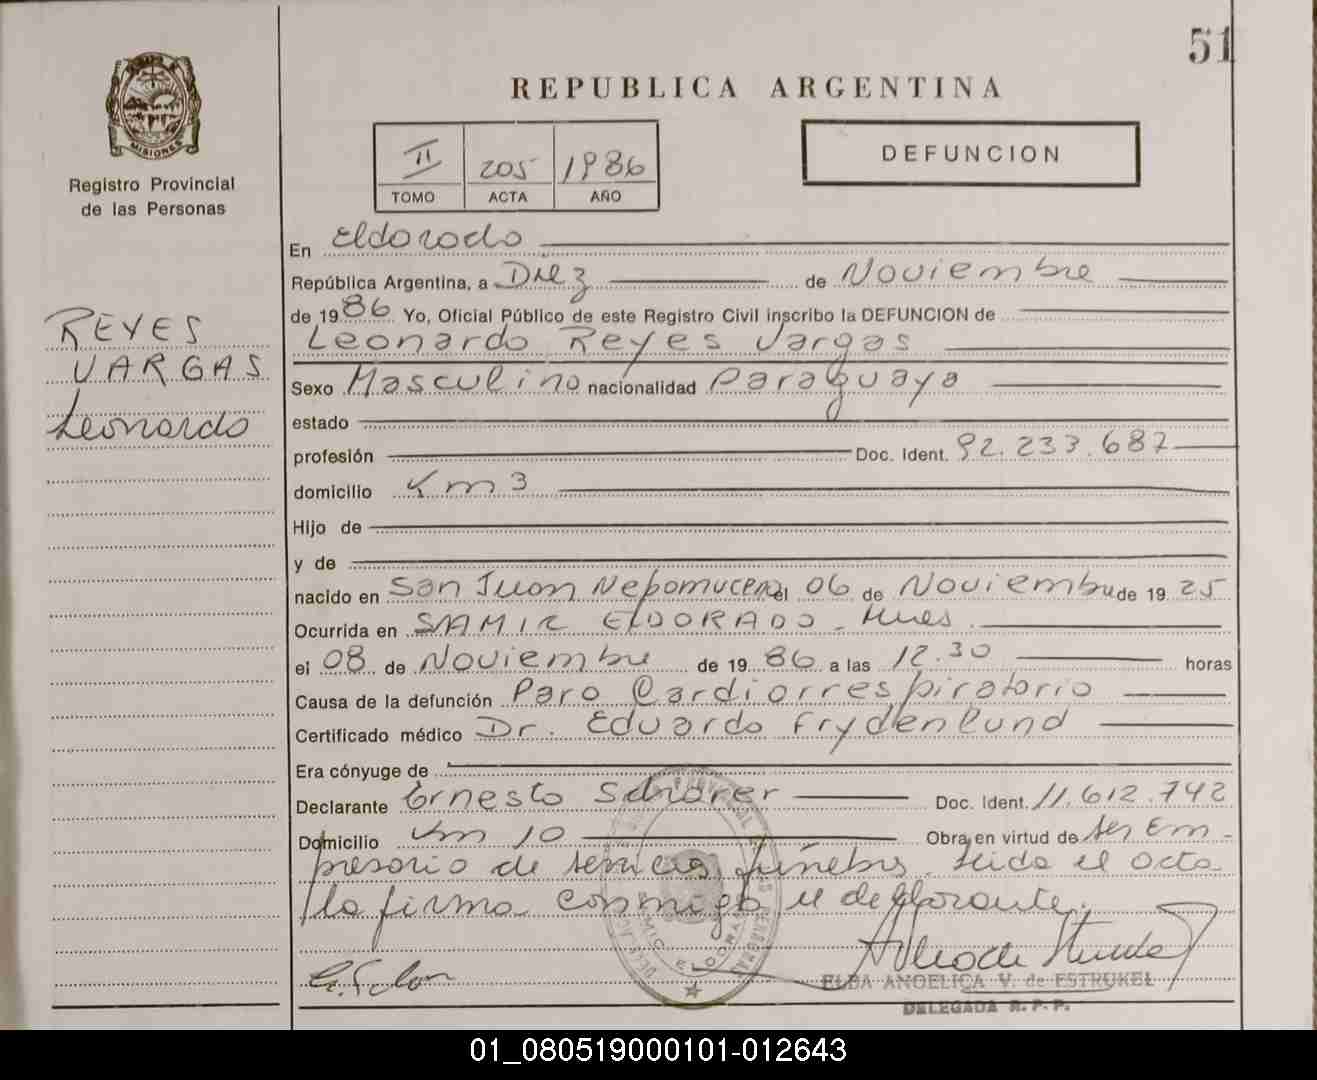 51
REPUBLICA ARGENTINA
MISIONES
Registro Provincial
de las Personas
II 205 1986
TOMO ACTA AÑO
DEFUNCION
REYES
VARGAS
Leonardo
En Eldorado
República Argentina, a Diez de Noviembre
de 1986 Yo, Oficial Público de este Registro Civil inscribo la DEFUNCION de
Leonardo Reyes Vargas
Sexo Masculino nacionalidad Paraguaya
estado
profesión Doc. Ident. 92.233.687
domicilio Km 3
Hijo de
y de
nacido en San Juan Nepomuceno el 06 de Noviembre de 1925
Ocurrida en SAMIC ELDORADO - Mnes
el 08 de Noviembre de 1986 a las 12.30 horas
Causa de la defunción Paro Cardiorrespiratorio
Certificado médico Dr. Eduardo Frydenlund
Era cónyuge de
Declarante Ernesto Scharer Doc. Ident. 11.612.742
Domicilio Km 10 Obra en virtud de ser Em-
presario de servicios fúnebres. Leida el acta
la firma conmigo el declarante.
ELBA ANGELICA V. de ESTRUKEL
DELEGADA R. P. P.
01_080519000101-012643